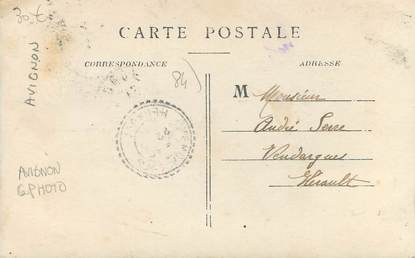 30€
AVIGNON
CARTE POSTALE
CORRESPONDANCE
ADRESSE
84)
M Monsieur
André Serre
Vendargues
Hérault
AVIGNON
G.PHOTO